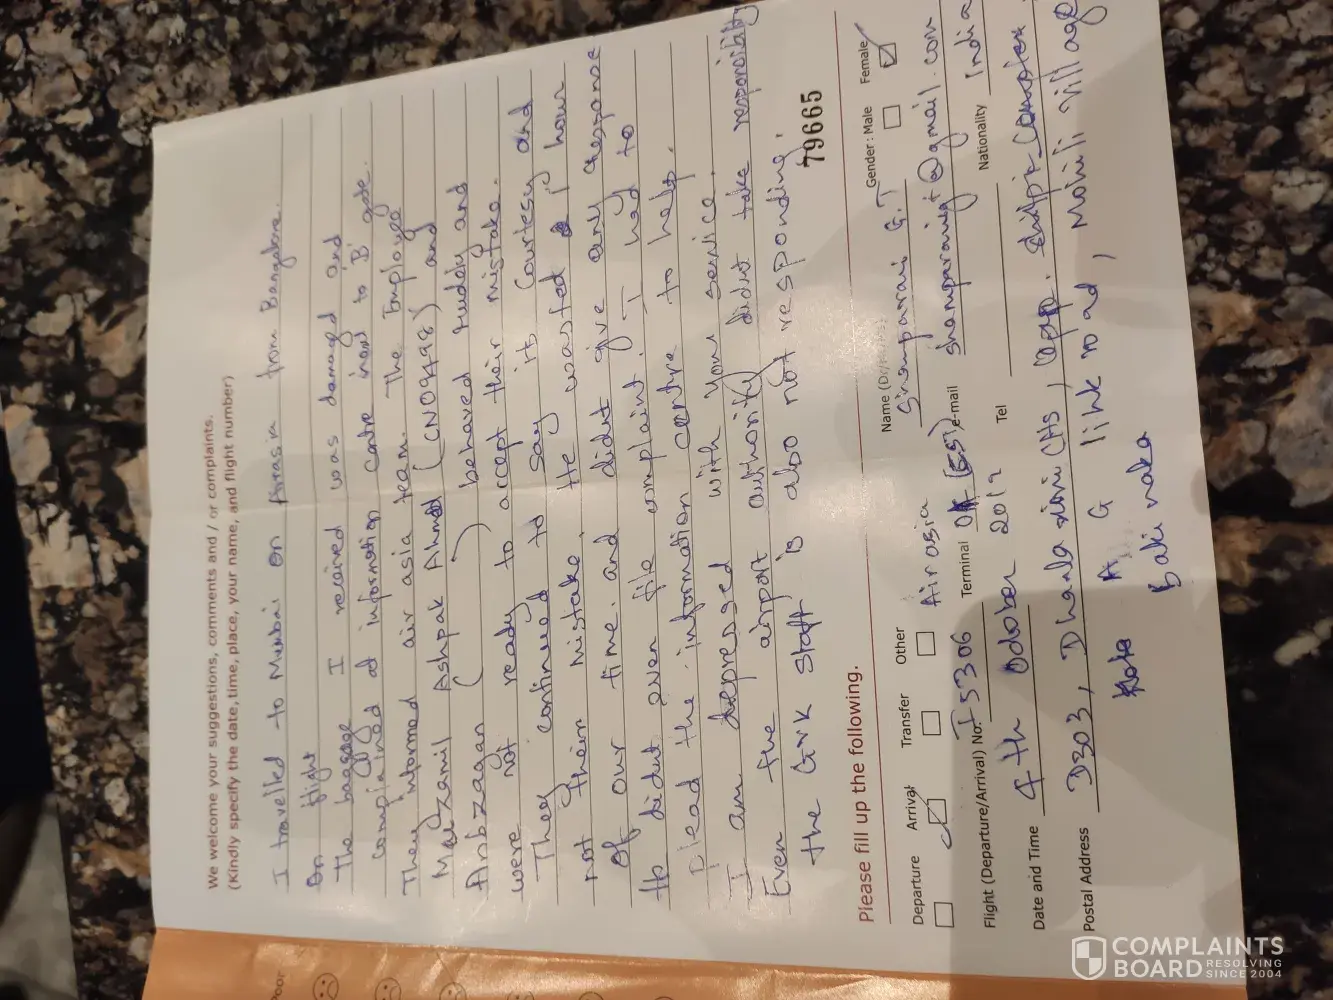 We welcome your suggestions, comments and / or complaints.
(Kindly specify the date, time, place, your name, and flight number)
I travelled to Mumbai on Airasia from Bangalore.
on flight
The baggage I received was damaged and
complained at information centre in to 'B' gate.
They informed air asia team. The Employee
Ashpak Ahmed (CN09498) and
( ) behaved ruddly and
were not ready to accept their mistake.
They continued to say its Courtesy and
not their mistake. He wasted 1 hour
of our time. and didnt give any response
to didnt even file complaint. I had to
plead the information centre to help.
I am depressed with your service.
Even the airport authority didnt take responsibility
the GVK staff is also not responding.
79665
Please fill up the following.
Departure Arrival Transfer Other Airasia
Name Shamparani G.T Gender : Male Female
Flight (Departure/Arrival) No. I5306 Terminal e-mail shamparanigt@gmail.com
Date and Time 4th October 2019 Tel Nationality India
Postal Address D303, CHS, Opp.
A G link road, village
Saki naka
Poor
COMPLAINTS
BOARD RESOLVING
SINCE 2004